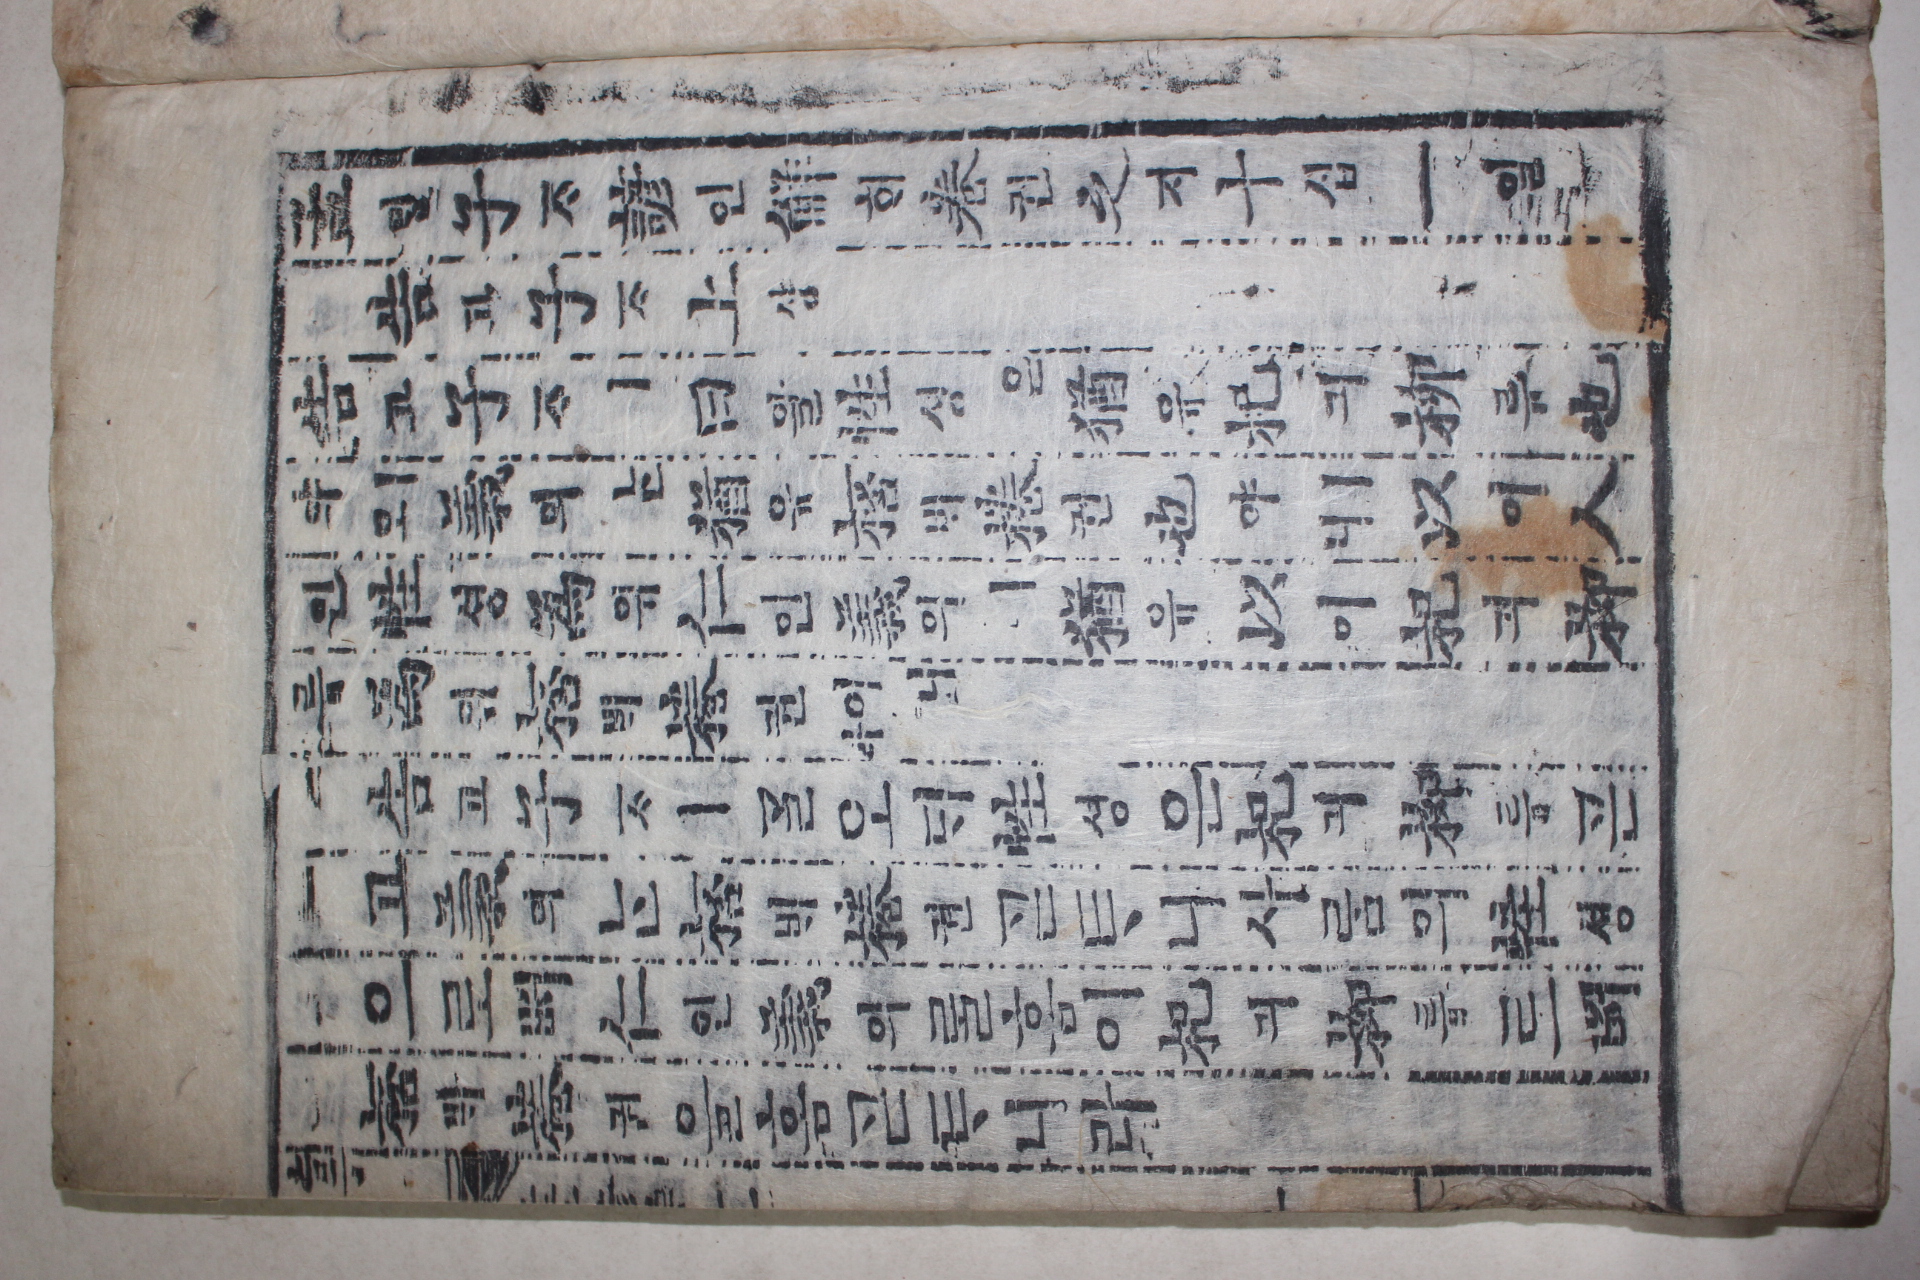 孟ᄆᆡᆼ子ᄌᆞ諺언解ᄒᆡ卷권之지十십一일
告고子ᄌᆞ上샹
告고子ᄌᆞㅣ曰왈性셩은猶유杞긔柳류也
야ㅣ오義의ᄂᆞᆫ猶유桮ᄇᆡ棬권也야ㅣ니以이人
인性셩爲위仁인義의ㅣ猶유以이杞긔柳
류爲위桮ᄇᆡ棬권이니
告고子ᄌᆞㅣᄀᆞᆯ오ᄃᆡ性셩은杞긔柳류ᄀᆞᆮ
고義의ᄂᆞᆫ桮ᄇᆡ棬권ᄀᆞᆮᄐᆞ니사ᄅᆞᆷ의性셩
으로ᄡᅥ仁인義의ᄅᆞᆯᄒᆞᆷ이杞긔柳류로ᄡᅥ
桮ᄇᆡ棬권ᄒᆞᆷᄀᆞᆮᄐᆞ니라